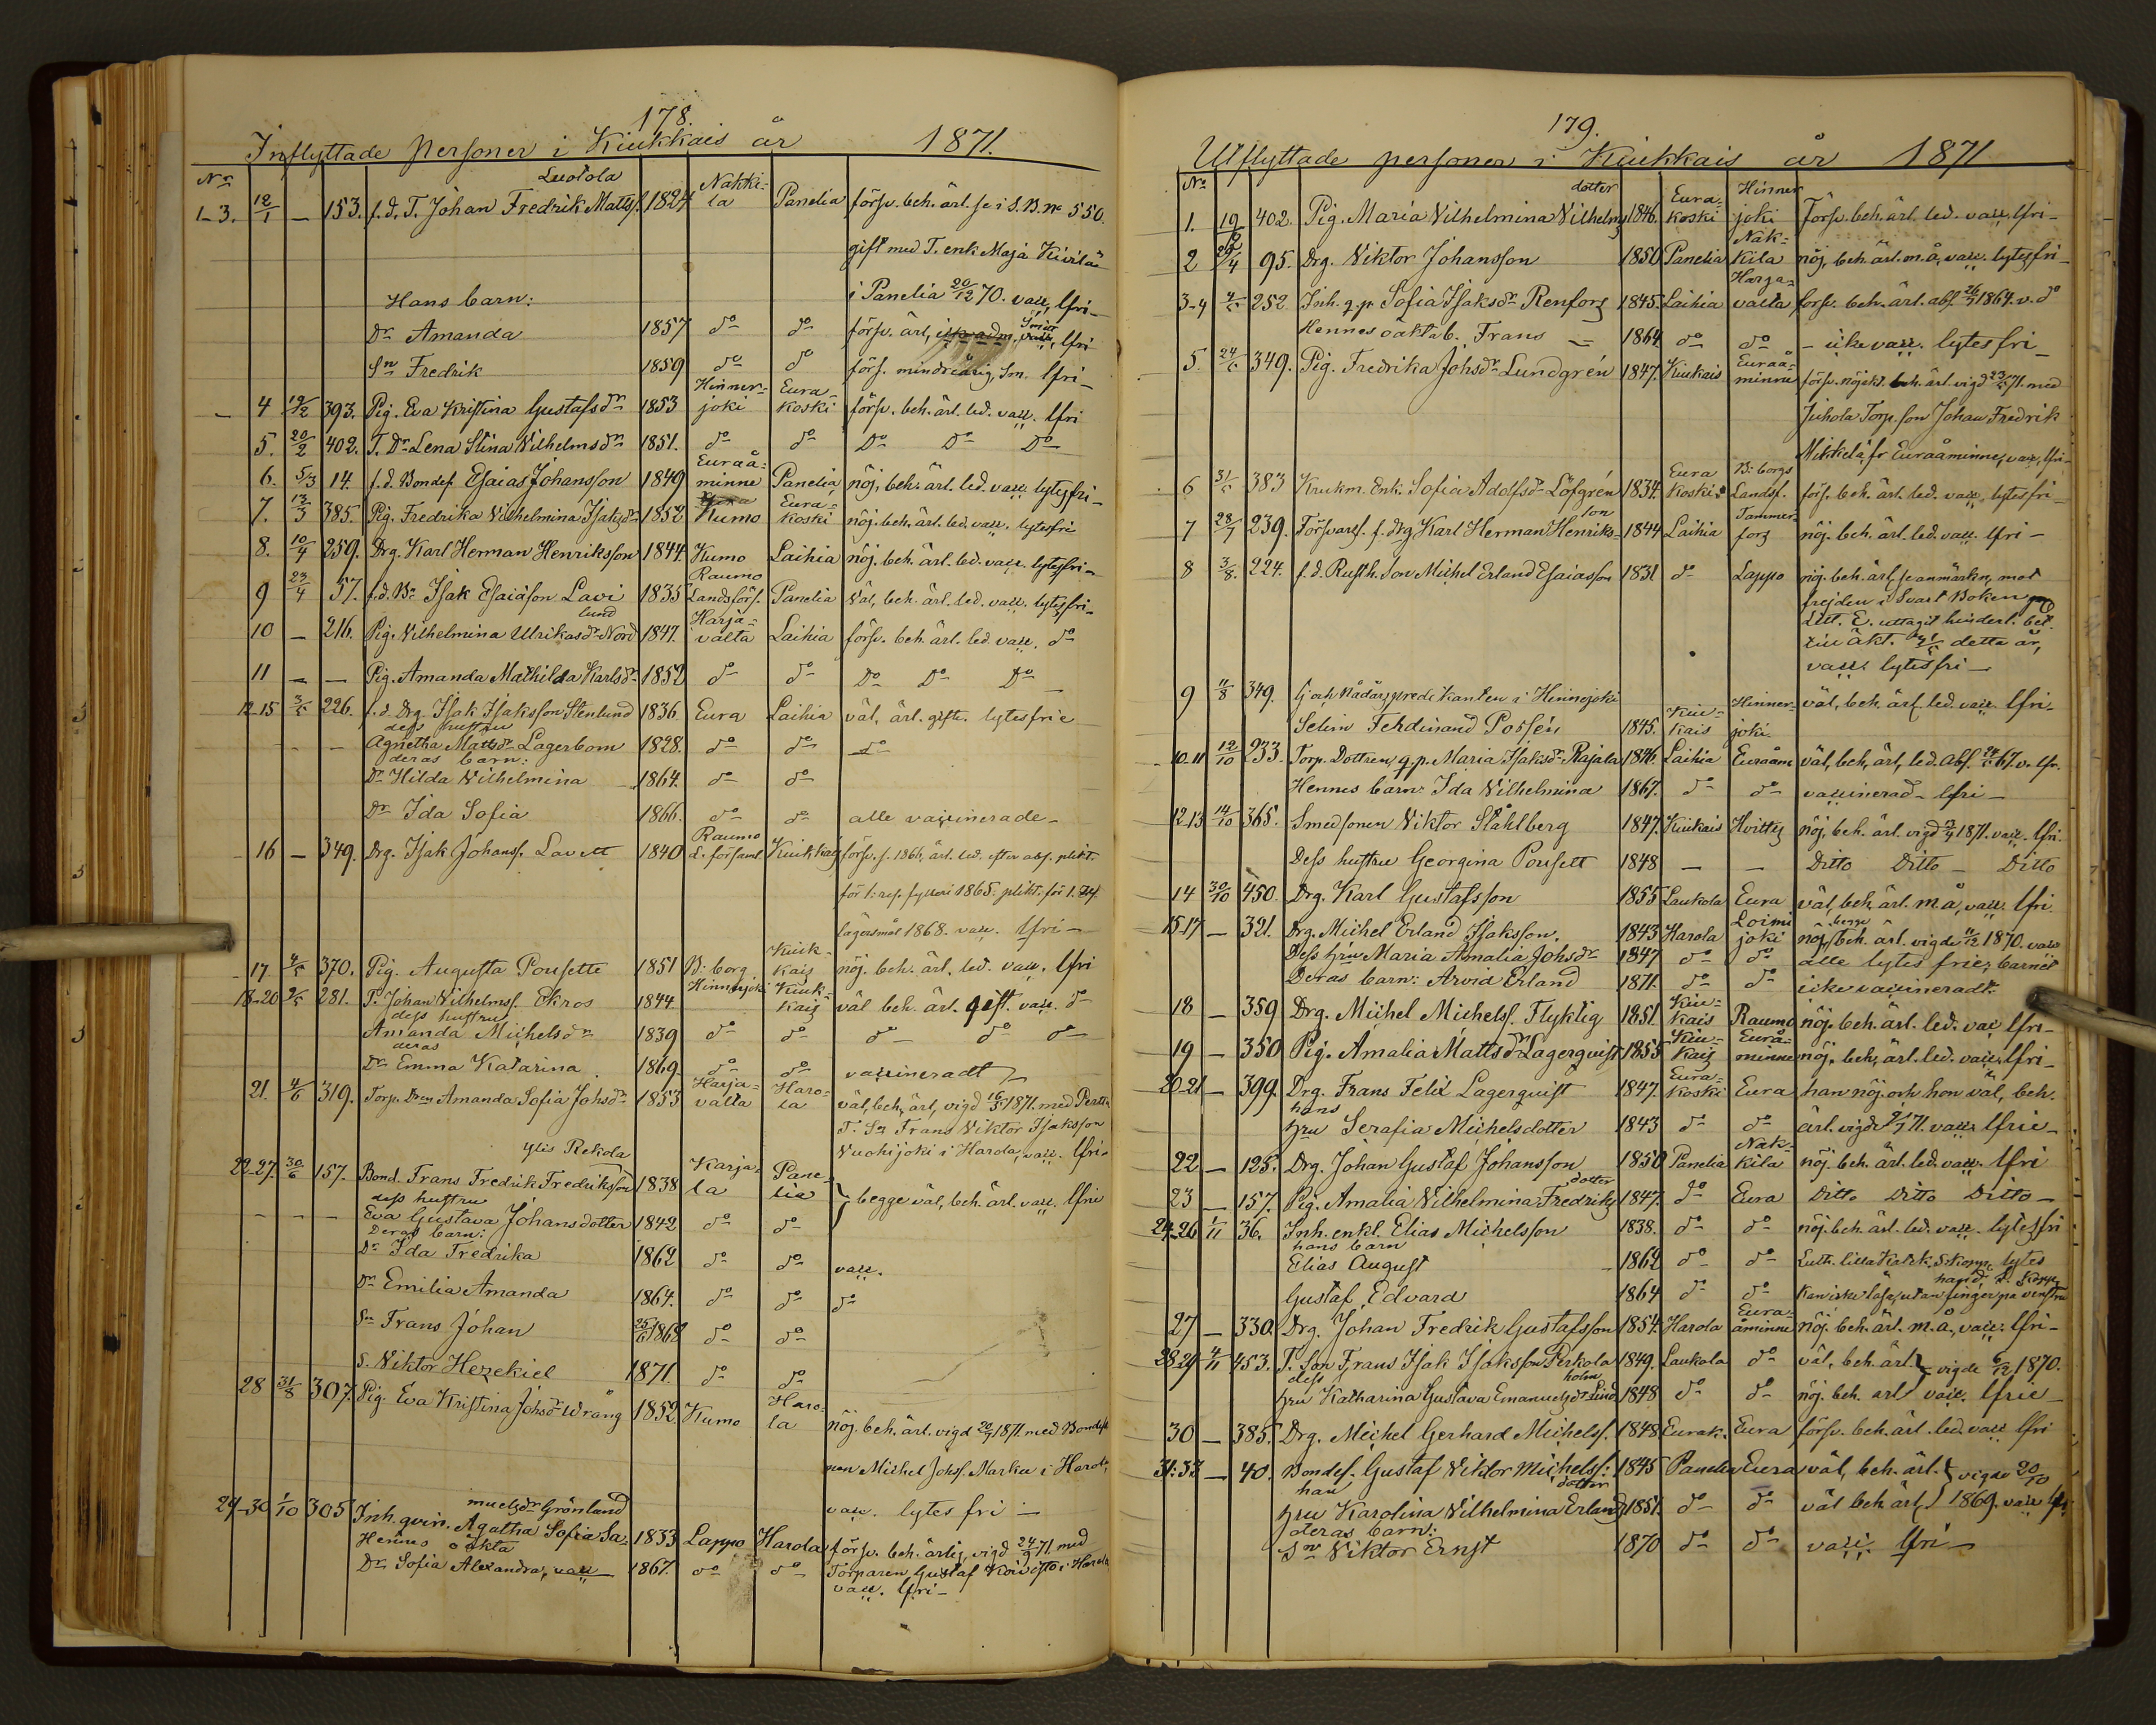 178.
Inflyttade Personer i Kiukkais år 1871.
No
Luotola
1-3. 12/1 — 153. f.d. T. Johan Fredrik Matts. 1824 Nakkila Panelia försv. beh. ärl. se i S.B. No 550.
gift med T. enk. Maja Kivilä
i Panelia 20/12 70. vacc, lfri-
Hans barn:
Dr Amanda 1857 do do försv. ärl, lfri
Sn Fredrik 1859 do do förs. mindreårig, Sm. lfri-
4 19/2 393. Pig. Eva Kristina Gustafsdr 1853 Hinnerjoki Eurakoski försv. beh. ärl. led. vacc. lfri
5. 20/2 402. T. Dr Lena Stina Vilhelmsdr 1851. do do Do Do Do
6. 5/3 14. f.d. Bondes. Esaias Johansson 1849 Euraåminne Panelia nöj. beh. ärl. led. vacc. lytesfri-
7. 13/3 385. Pig. Fredrika Vilhelmina Isaksdr 1852 Kumo Eurakoski nöj. beh. ärl. led. vacc. lytesfri
8. 10/4 259. Drg. Karl Herman Henriksson 1844. Kumo Laihia nöj. beh. ärl. led. vacc. lytesfri-
9 23/4 57. f.d. Br Isak Esaiason Lavi 1835 Raumo Landsförs. Panelia väl, beh. ärl. led. vacc. lytesfri-
10 — 216. Pig. Vilhelmina Ulrikasdr Nordlund 1847. Harjavalta Laihia försv. beh. ärl. led. vacc. do
11 — — Pig. Amanda Mathilda Karlsdr 1852 do do Do Do Do
12-15 3/5 226. f.d. Drg. Isak Isaksson Stenlund 1836 Eura Laihia väl, ärl. gifte. lytesfrie
dess hustru
— — Agnetha Mattsdr Lagerbom 1828. do do do
deras barn:
Dr Hilda Vilhelmina 1864. do do
Dr Ida Sofia 1866. do do alle vaccinerade-
16 — 349. Drg. Isak Johanss. Lavett 1840 Raumo L. församl Kiukkais försv. s. 1866, ärl. led. efter abs. plikt.
för 1: res. fylleri 1865. plikt. för 1.
lägersmål 1868. vacc. lfri-
17. 4/5 370. Pig. Augusta Pousette 1851 B:borg. Kiukkais nöj. beh. ärl. led. vacc. lfri
18-20 9/5 281. T. Johan Vilhelmss. Ekros 1844 Hinnerjoki Kiukkais väl beh. ärl. gift. vacc. do
dess hustru
Amanda Michelsdr 1839 do do do do do
deras
Dr Emma Katarina 1869. do do vaccineradt
21. 4/6 319. Torp. Dren Amanda Sofia Johsdr 1853 Harjavalta Harola väl, beh, ärl, vigd 16/5 1871. med Pertt
T. Sn Frans Viktor Isaksson
Vuohijoki i Harola, vacc. lfri-
ylis Rekola
22-27. 30/6 157. Bond. Frans Fredrik Fredriksson 1838 Karjala Panelia } begge väl, beh. ärl. vacc. lfrie
dess hustru
— — — Eva Gustava Johansdotter 1842 do do
Deras barn:
Dr Ida Fredrika 1862 do do vacc.
Dr Emilia Amanda 1864. do do do
Sn Frans Johan 25/6 1868 do do
S. Viktor Hezekiel 1871. do do
28 31/8 307. Pig. Eva Kristina Johsdr Wrång 1852 Kumo Harola nöj. beh. ärl. vigd 20/7 1871. med Bondes
nen Michel Johss. Marku i Harola
vacc. lytes fri —
muelsdr Grönland
29-30 1/10 305 Inh. qvin. Agatha Sofia Sa- 1833 Lappo Harola försv. beh. ärlig, vigd 24/9 71 med
Hennes oäkta
Dr Sofia Alexandra, vacc 1867. do do Torparen Gustaf Koivisto i Harola
vacc. lfri-
179.
Utflyttade personer i Kiukkais år 1871
No
1. 19/2 402. Pig. Maria Vilhelmina Vilhelmsdotter 1846. Eurakoski Hinnerjoki Försv. beh. ärl. led. vacc, lfri-
2 29/4 95. Drg. Viktor Johansson 1850 Panelia Nakkila nöj. beh. ärl. m. å, vacc. lytesfri-
3-4 4/5 252. Inh. q.p. Sofia Isaksdr Renfors 1845. Laihia Harjavalta försv. beh. ärl. abs. 26/7 1864. v. do
Hennes oäkta b. Frans — 1864 do do — icke vacc. lytes fri
5. 24/5 349. Pig. Fredrika Johsdr Lundgrén 1847. Kiukais Euraåminne försv. nöjakt. beh. ärl. vigd 23/5 71. med
Juhola Torp. son Johan Fredrik
Mikkelä fr Euraåminne, vacc, lfri-
6 31/5 383 Krukm. Enk. Sofia Adolfsdr Löfgrén 1834. Eurakoski B:borgs Landsf. förs. beh. ärl. led. vacc, lytesfri-
7 28/7 239. Försvarsl. f. drg Karl Herman Henriksson 1844 Laihia Tammerfors nöj. beh. ärl. led. vacc. lfri-
8 3/8. 224. f.d. Rusth. Son Michel Erland Esaiasson 1831 do Lappo nöj. beh. ärl, se anmärkn, mot
frejden i Svart Boken
Litt. E. uttagit hindersl. bet.
till äkt. detta år,
vacc. lytesfri —
9 11/8 349. Hinnerjoki
Selim Ferdinand Possén 1845. Kiukais Hinnerjoki väl, beh. ärl. led. vacc lfri-
10-11 12/10 233. Torp. Dottren, q.p. Maria Isaksdr Rajala 1846. Laihia Euraåm väl, beh, ärl, led. Abs. 67. v. lfr.
Hennes barn: Ida Vilhelmina 1867. do do vaccinerad- lfri-
12-13 14/10 365. Smedsonen Viktor Ståhlberg 1847. Kiukais Hvittis nöj. beh. ärl. vigd 1871. vacc. lfri.
Dess hustru Georgina Pousett 1848 — — Ditto Ditto — Ditto
14 30/10 450. Drg. Karl Gustafsson 1855 Laukola Eura väl, beh, ärl. m å, vacc. lfri.
15-17 — 321. Drg. Michel Erland Isaksson. 1843 Harola Loimijoki nöj begge beh. ärl. vigde 11/12 1870. vacc
Dess hru Maria Amalia Johsdr 1847 do do alle lytes frie, barnet
Deras barn: Arvid Erland 1871. do do icke vaccineradt.
18 — 359 Drg. Michel Michelss. Flyktig 1851. Kiukais Raumo nöj. beh. ärl. led. vac lfri-
19 — 350 Pig. Amalia Mattsdr Lagerquist 1855 Kiukais Euraåminne nöj. beh, ärl. led. vacc, lfri-
20-21 — 399. Drg. Frans Felix Lagerquist 1847. Eurakoski Eura han nöj. och hon väl, beh.
hans
hru Serafia Michelsdotter 1843 do do ärl. vigde 71. vacc, lfrie-
22 — 125. Drg. Johan Gustaf Johansson 1850 Panelia Nakkila nöj. beh. ärl. led. vacc. lfri
23 — 157. Pig. Amalia Vilhelmina Fredriksdotter 1847. do Eura Ditto Ditto Ditto —
24-26 1/11 36. Inh. enkl. Elias Michelsson 1838. do do nöj. beh. ärl. led. vacc — lytesfri
hans barn
Elias August 1862 do do Luth. lilla Katek. Skopp. lytes
Gustaf Edvard 1864 do do Kan icke läsa, utan finger på venstra hand, S. Kopp
27 — 330. Drg. Johan Fredrik Gustafsson 1854. Harola Euraåminne nöj. beh. ärl. m. å, vacc. lfri-
28-29 4/11 453. T. Son Frans Isak Isaksson Perkola 1849. Laukola do väl, beh. ärl. } vigde 6/12 1870.
dess
hru Katharina Gustava Emanuelsdr Lindholm 1848 do do nöj. beh. ärl vacc. lfrie —
30 — 385. Drg. Michel Gerhard Michelss. 1848 Eurak. Eura försv. beh. ärl. led. vacc lfri
31-33 — 40. Bondes. Gustaf Viktor Michelss: 1845 Panelia Eura väl, beh. ärl. } vigde 20/10
han
hru Karolina Vilhelmina Erlandsdotter 1851. do do väl beh ärl, } 1869. vacc lfri
deras barn:
Sn Viktor Ernst 1870 do do vacc. lfri —